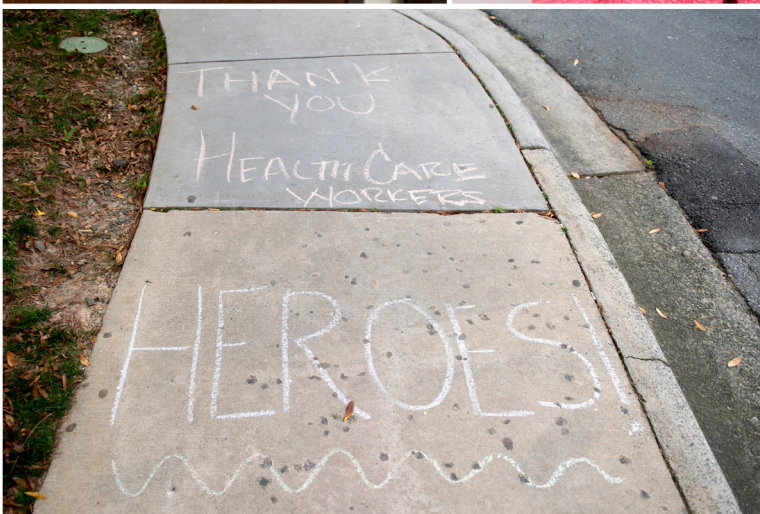 THANK
YOU
HEALTH CARE
WORKERS
HEROES!